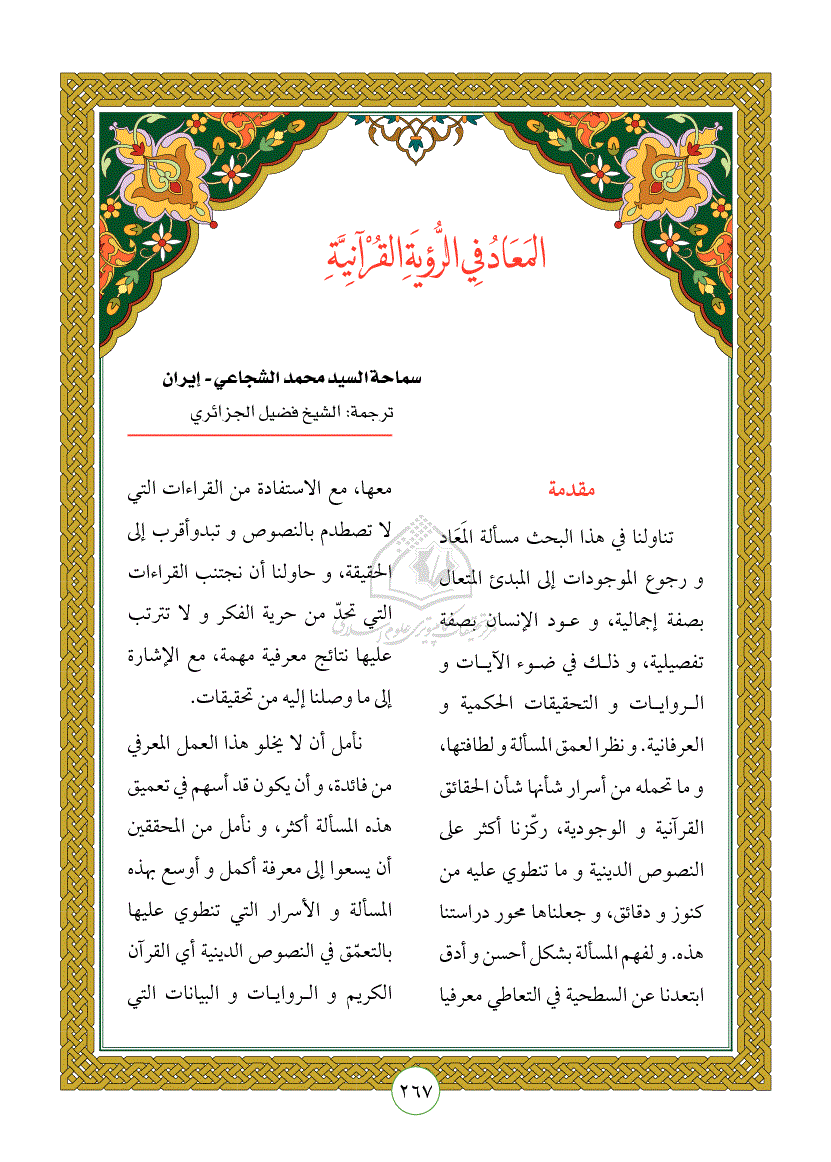 المَعَادُ فِي الرُّؤيَةِ القُرْآنِيَّةِ
سماحة السيد محمد الشجاعي - إيران
ترجمة: الشيخ فضيل الجزائري
مقدمة
تناولنا في هذا البحث مسألة المَعَاد
و رجوع الموجودات إلى المبدئ المتعال
بصفة إجمالية، و عـود الإنسان بصفة
تفصيلية، و ذلـك في ضـوء الآيـات و
الـروايـات و التحقيقات الحكمية و
العرفانية. و نظرا لعمق المسألة و لطافتها،
و ما تحمله من أسرار شأنها شأن الحقائق
القرآنية و الوجودية، ركّزنا أكثر على
النصوص الدينية و ما تنطوي عليه من
كنوز و دقائق، و جعلناها محور دراستنا
هذه. و لفهم المسألة بشكل أحسن و أدق
ابتعدنا عن السطحية في التعاطي معرفيا
معها، مع الاستفادة من القراءات التي
لا تصطدم بالنصوص و تبدو أقرب إلى
الحقيقة، و حاولنا أن نجتنب القراءات
التي تحدّ من حرية الفكر و لا تترتب
عليها نتائج معرفية مهمة، مع الإشارة
إلى ما وصلنا إليه من تحقيقات.
نأمل أن لا يخلو هذا العمل المعرفي
من فائدة، و أن يكون قد أسهم في تعميق
هذه المسألة أكثر، و نأمل من المحققين
أن يسعوا إلى معرفة أكمل و أوسع بهذه
المسألة و الأسرار التي تنطوي عليها
بالتعمّق في النصوص الدينية أي القرآن
الكريم و الـروايـات و البيانات التي
مرکز تحقیقات کامپیوتری علوم اسلامی
٢٦٧